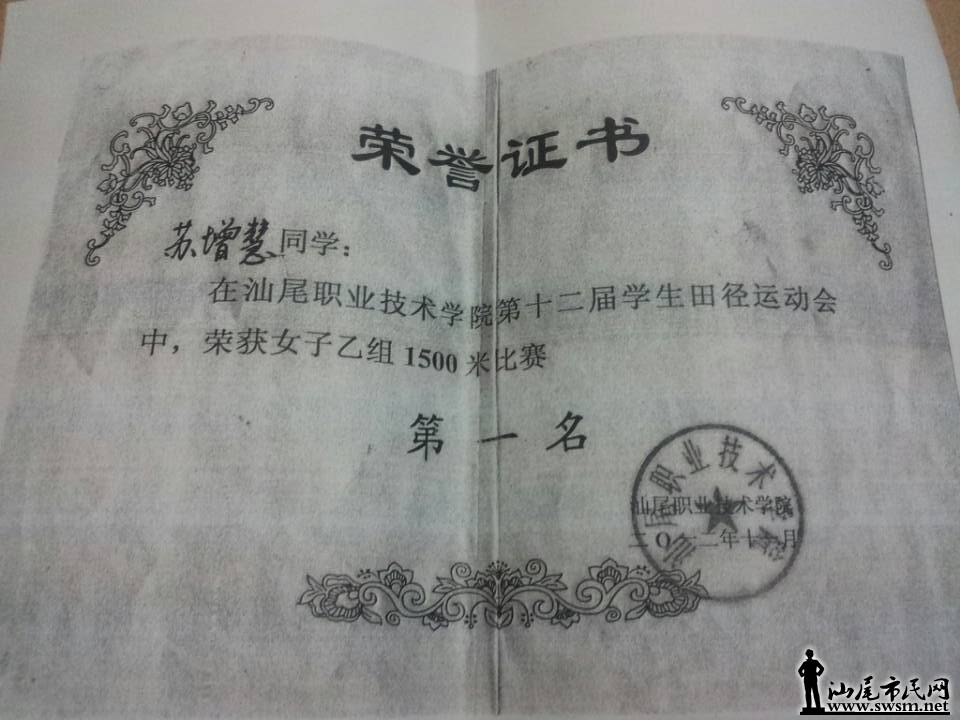 荣誉证书
苏增慧同学：
在汕尾职业技术学院第十二届学生田径运动会
中，荣获女子乙组1500米比赛
第一名
汕尾职业技术学院
汕尾职业技术学院
二〇一二年十一月
汕尾市民网
www.swsm.net